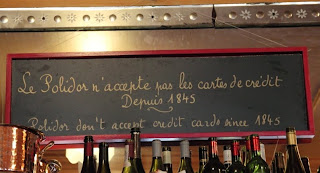 Le Polidor n'accepte pas les cartes de crédit
Depuis 1845
Polidor don't accept credit cards since 1845